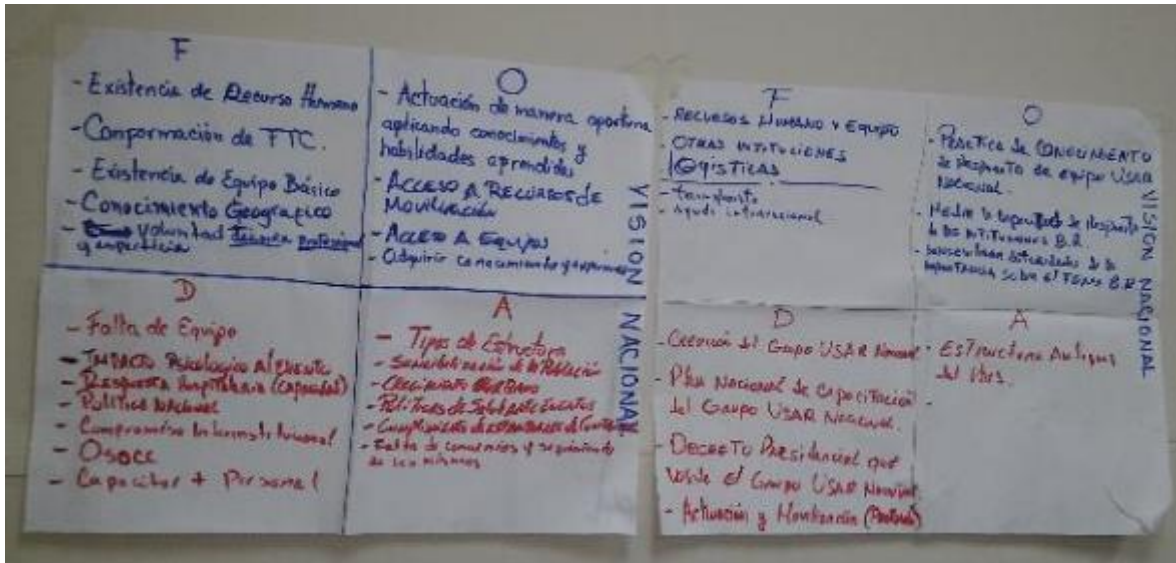 F
- Existencia de Recurso Humano
- Conformación de FTC.
- Existencia de Equipo Básico
- Conocimiento Geografico
- Voluntad
y experticia
O
- Actuación de manera oportuna
aplicando conocimientos y
habilidades aprendidas
- ACCESO A RECURSOS DE
MOVILIZACIÓN
- ACCESO A EQUIPOS
- Adquirir conocimiento y
VISION NACIONAL
D
- Falta de Equipo
- IMPACTO Psicologico Al
- Respuesta Hospitalaria (capacidad)
- Politica Nacional
- Compromiso Interinstitucional
- Osocc
- Capacitar + Personal
A
- Tipos de Estructura
- Sensibilización de la Población
- CRECIMIENTO
- Politicas de Salud ante Eventos
- Cumplimiento de
- Falta de convenios y seguimiento
de los mismos
F
- RECURSOS HUMANO Y EQUIPO
- OTRAS INSTITUCIONES
LOGISTICAS
- transporte
- Ayuda internacional
O
- PRACTICA de CONOCIMIENTO
de Respuesta de equipo USAR
Nacional.
- Medir la capacidad de Respuesta
de las instituciones B.R
VISION NACIONAL
D
- Creación del Grupo USAR Nacional
- Plan Nacional de Capacitación
del Grupo USAR Nacional.
- DECRETO PRESIDENCIAL que
el Grupo USAR Nacional
- Activación y Movilización
A
- Estructura Antigua
del País.
-